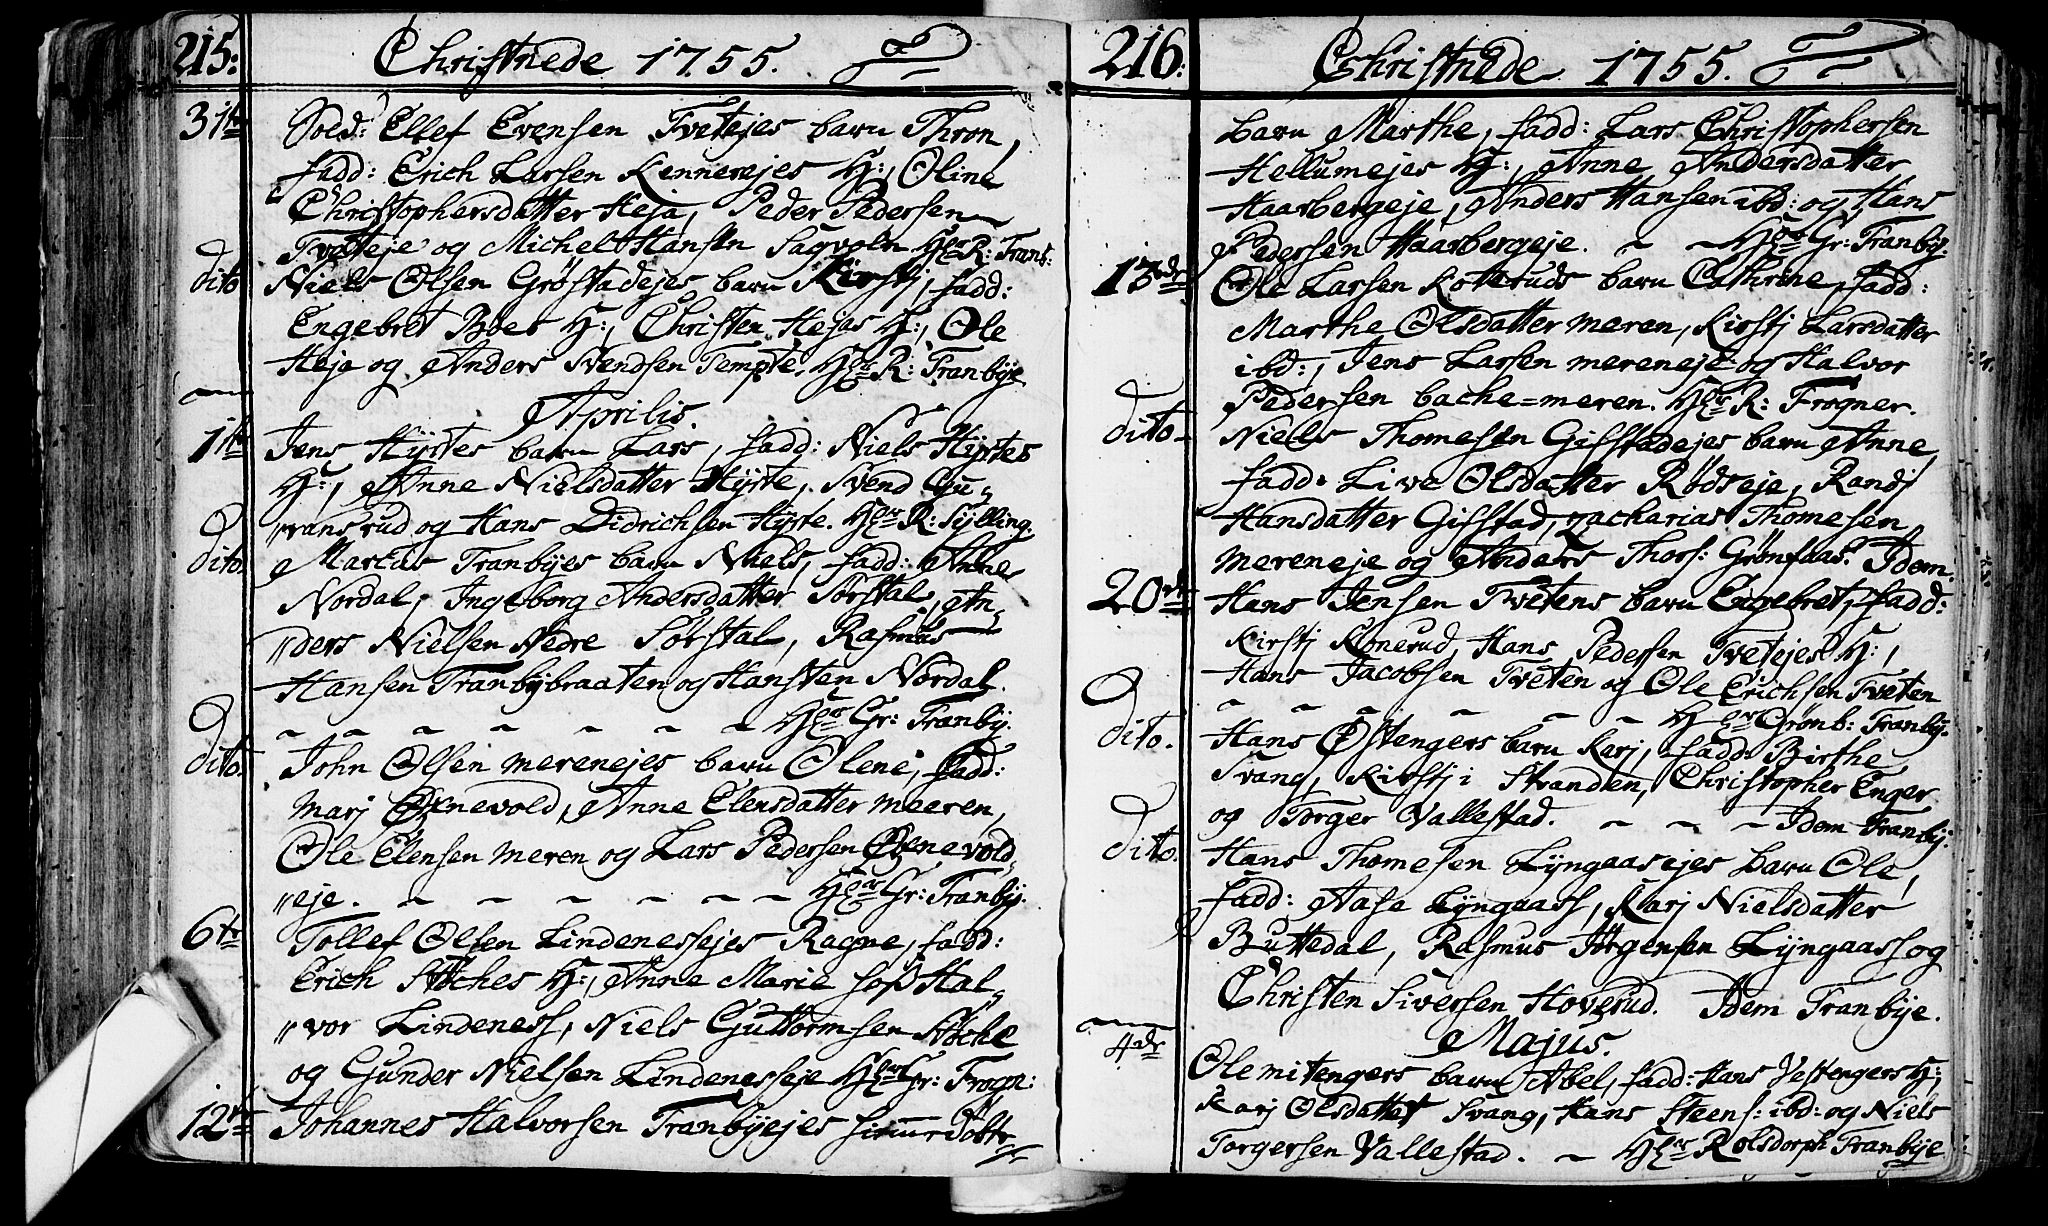 215: Christnede 1755.
31te Sold: Ellef Evensen Tvetejes barn Thron,
fadd: Erich Larsen Kennerejes H:, Oline
Christophersdatter Heja, Peder Pedersen
Tveteje og Michel Hansen Sagvoln Hr R: Tranb:
dito Niels Olsen Gröstadejes barn Kirstj, fadd:
Engebret Böes H:, Christen Hejas H:, Ole
Heja og Anders Svendsen Tempte. Hr R: Tranbÿe
Aprilis.
1te Jens Hÿrtes barn Lars, fadd: Niels Hÿrtes
H:, Anne Nielsdatter Hÿrte, Svend Gu-
"ransrud og Hans Didrichsen Hÿrte. Hr R: Sÿlling.
dito. Martas Tranbÿes barn Niels, fadd: Anne
Nordal, Ingeborg Andersdatter Sörstal, An-
"ders Nielsen Nedre Sörstal, Rasmus
Hansen Tranbÿbraaten og Hansten Nordal.
Hr Gr: Tranbÿ.
dito. John Olsen merenejes barn Olene, fadd:
Marj Ovnevold, Anne Elensdatter meeren,
Ole Elensen meren og Lars Pedersen Ovnevold-
"eje. Hr Gr: Tranbÿ.
6te Tollef Olsen Lindenessejes Ragne, fadd:
Erich Stöches H:, Anne Marie hos Hal-
"vor Lindeness, Niels Guttormsen Stöche
og Gunder Nielsen Lindenesseje Hr Gr: Frogn:
12te Johannes Halvorsen Tranbÿejes
216: Christnede 1755.
barn Marthe, fadd: Lars Christophersen
Hellumejes H:, Anne Andersdatter
Haarbergeje, Anders Hansen ibd: og Hans
Pedersen Haarbergeje. Hr Gr: Tranbÿ.
13de Ole Larsen Kotteruds barn Cathrine, fadd:
Marthe Olsdatter meren, Kirstj Larsdatter
ibd:, Jens Larsen mereneje og Halvor
Pedersen bache=meren. Hr R: Frogner.
dito Niels Thomesen Gifstadejes barn Anne,
fadd: Live Olsdatter Rödseje, Randj
Hansdatter Gifstad, Zacharias Thomesen
mereneje og Anders Thors: Grönsaas. Idem.
20de Hans Jensen Tvetens barn Engebret, fadd:
Kirstj Konerud, Hans Pedersen Tvetejes H:,
Hans Jacobsen Tveten og Ole Erichsen Tveten
Hr Grönb: Tranbÿ.
dito. Hans Östengers barn Karj, fadd: Birthe
Svang, Kirstj i Stranden, Christopher Enger
og Torger Vallestad. Idem Tranbÿ.
dito. Hans Thomesen Lÿngaasejes barn Ole,
fadd: Aase Lÿngaass, Karj Nielsdatter
Buttedal, Rasmus Jörgensen Lÿngaass og
Christen Siversen Hoverud. Idem Tranbÿe.
Majus.
4de Ole mitengers barn Abel, fadd: Hans Vestengers H:,
Karj Olsdatter Svang, Hans Steens: ibd: og Niels
Torgersen Vallestad. Hr Rolsdorph Tranbÿe